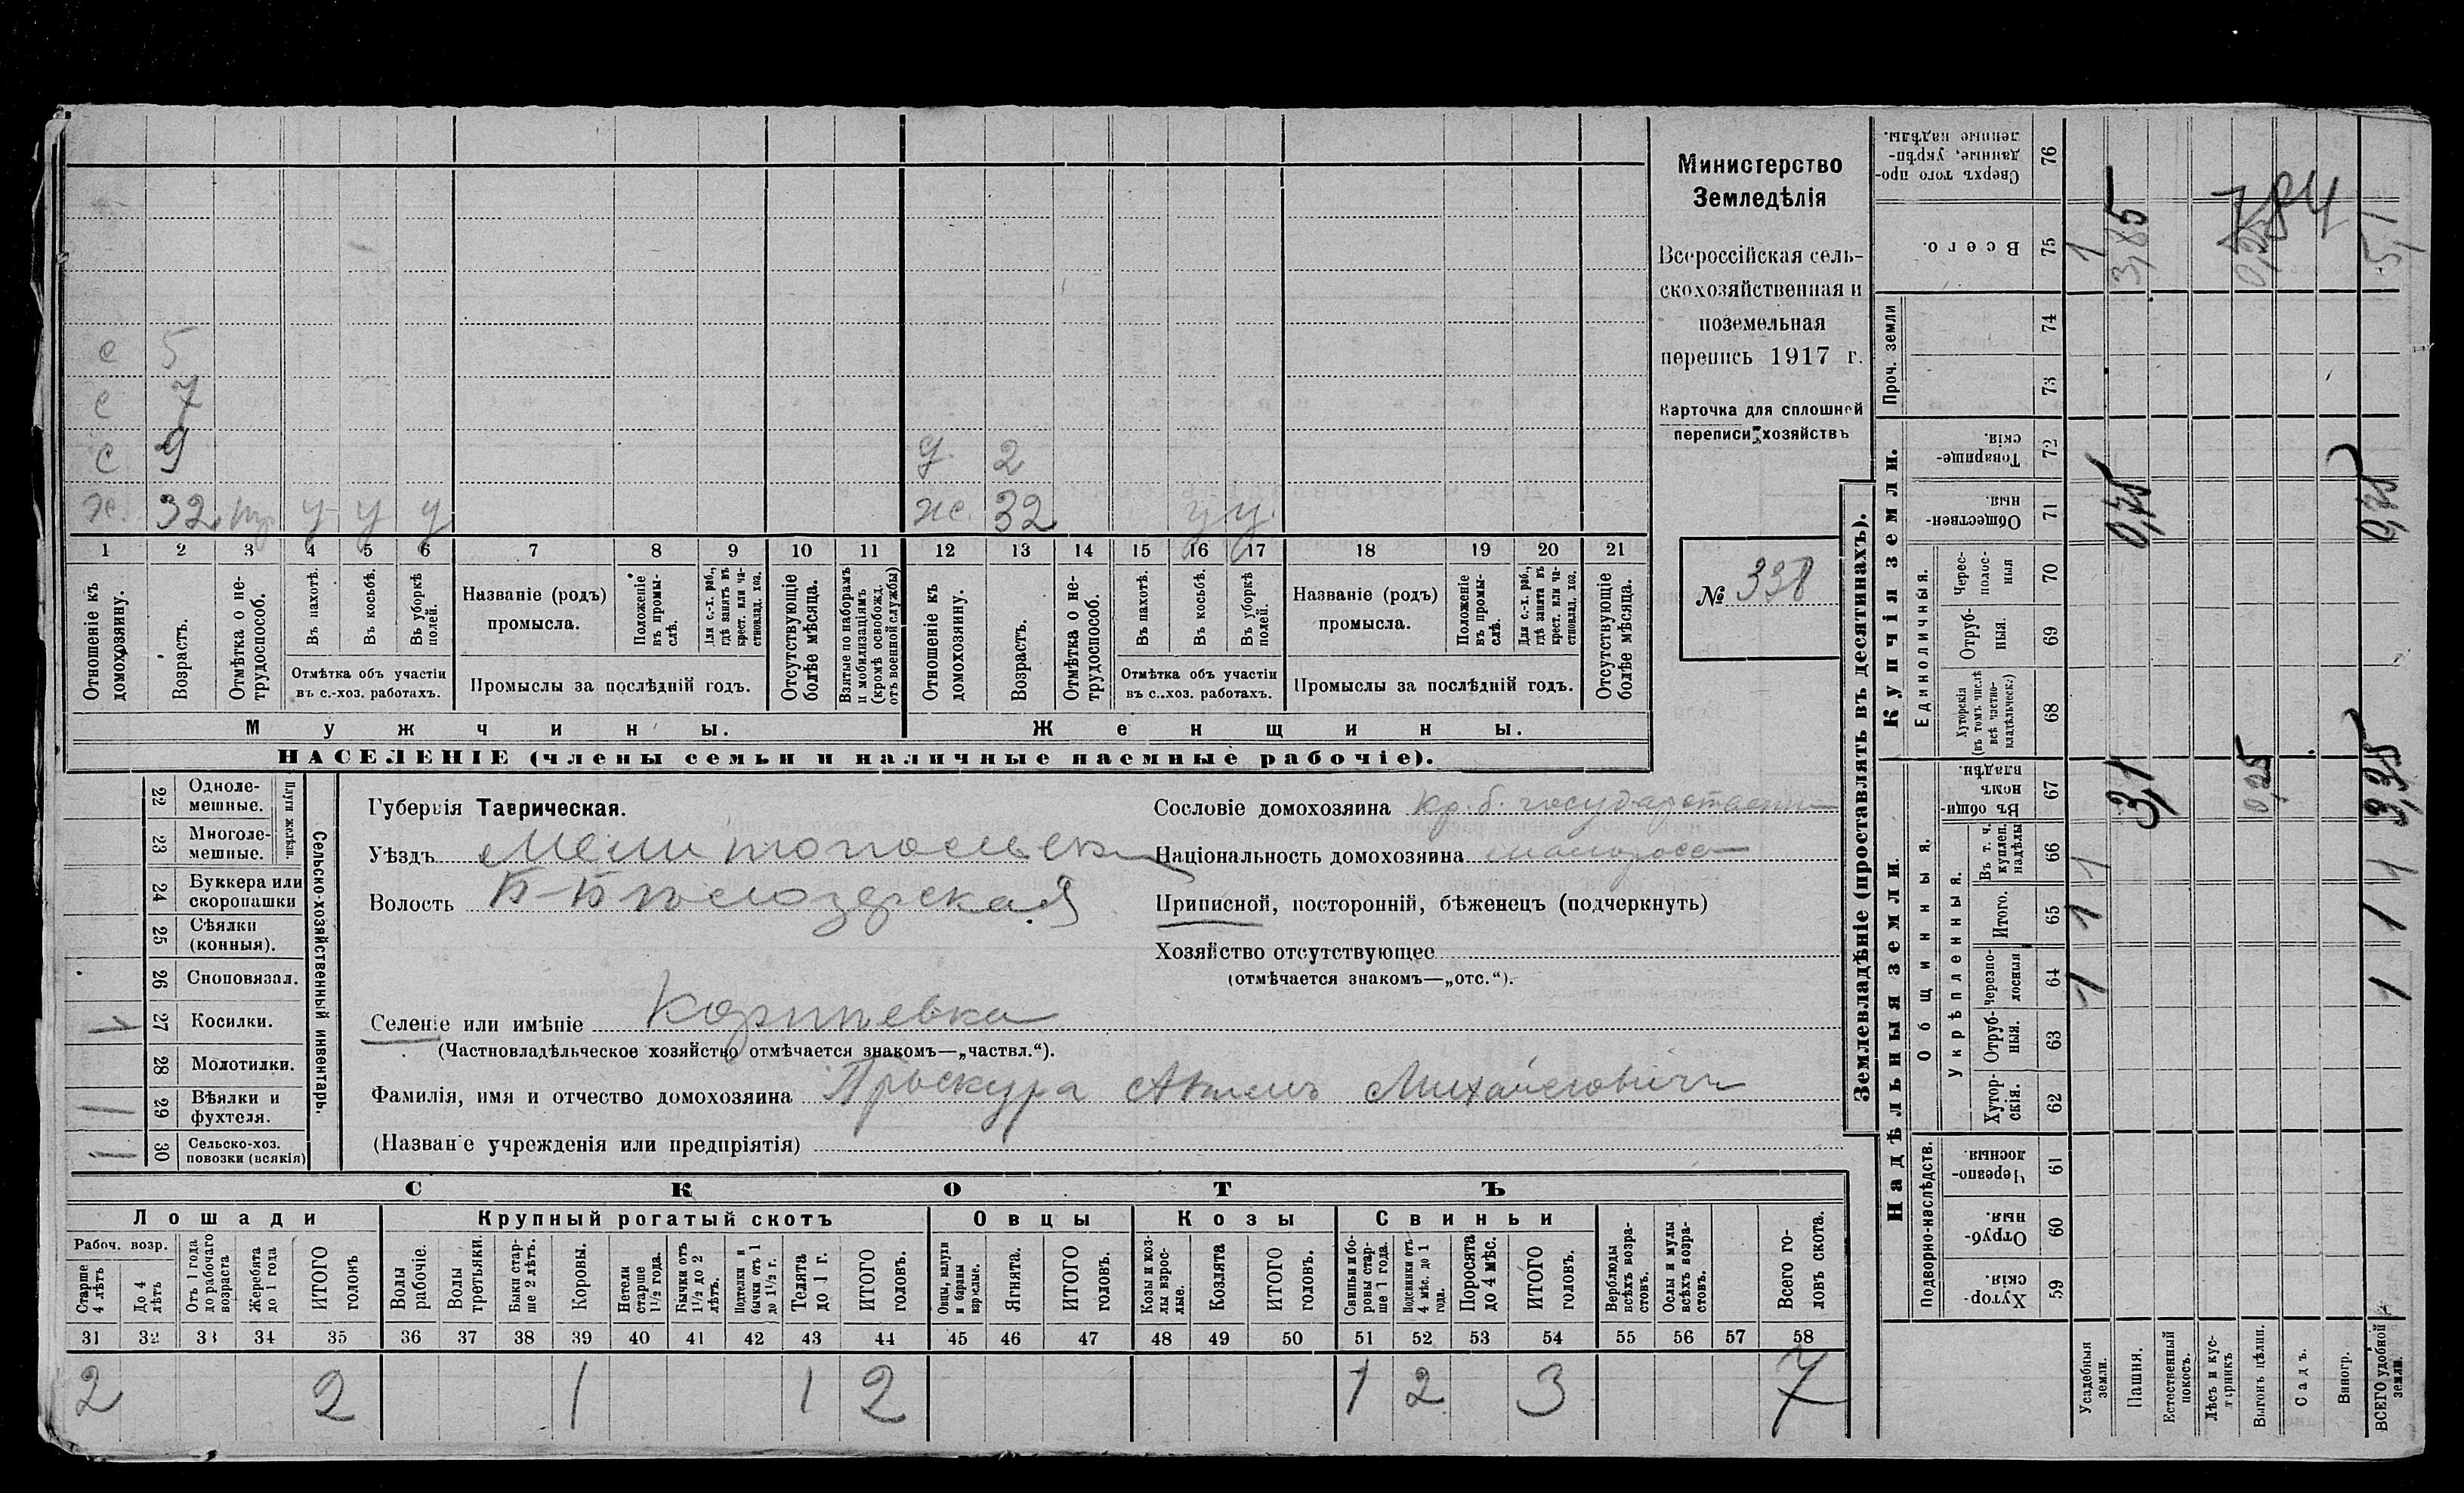 Министерство
Земледѣлія
Всероссійская сель-
скохозяйственная и
поземельная
перепись 1917 г.
Карточка для сплошной
переписи хозяйствъ
№ 338
с 5
с 7
с 9
д. 2
ж. 32 у у у
ж. 32 у у.
1 2 3 4 5 6 7 8 9 10 11 12 13 14 15 16 17 18 19 20 21
Отношеніе къ домохозяину.
Возрастъ.
Отмѣтка о не-трудоспособ.
Въ пахотѣ.
Въ косьбѣ.
Въ уборкѣ полей.
Отмѣтка объ участіи
въ с.-хоз. работахъ.
Названіе (родъ)
промысла.
Положеніе въ промы-слѣ.
Для с.-х. раб., гдѣ занятъ въ крест. или ча-стновлад. хоз.
Промыслы за послѣдній годъ.
Отсутствующіе болѣе мѣсяца.
Взятые по наборамъ и мобилизаціямъ (кромѣ освобожд. отъ военной службы)
Отношеніе къ домохозяину.
Возрастъ.
Отмѣтка о не-трудоспособ.
Въ пахотѣ.
Въ косьбѣ.
Въ уборкѣ полей.
Отмѣтка объ участіи
въ с..хоз. работахъ.
Названіе (родъ)
промысла.
Положеніе въ промы-слѣ.
Для с.-х. раб., гдѣ занята въ крест. или ча-стновлад. хоз.
Промыслы за послѣдній годъ.
Отсутствующіе болѣе мѣсяца.
Мужчины.
Женщины.
НАСЕЛЕНІЕ (члены семьи и наличные наемные рабочіе).
Сельско-хозяйственный инвентарь.
Плуги желѣзн.
22 Одноле-мешные.
23 Многоле-мешные.
24 Буккера или скоропашки
25 Сѣялки (конныя).
26 Сноповязал.
1 27 Косилки.
28 Молотилки.
1 29 Вѣялки и фухтеля.
1 30 Сельско-хоз. повозки (всякія)
Губернія Таврическая.
Уѣздъ Мелитопольск
Волость Б-Бѣлозерская
Селеніе или имѣніе
(Частновладѣльческое хозяйство отмѣчается знакомъ—„частвл.“).
Фамилія, имя и отчество домохозяина Проскура Михайловичъ
(Названіе учрежденія или предпріятія)
Сословіе домохозяина кр. б. государствен
Національность домохозяина малоросс
Приписной, посторонній, бѣженецъ (подчеркнуть)
Хозяйство отсутствующее
(отмѣчается знакомъ—„отс.“).
СКОТЪ
Лошади
Рабоч. возр.
Старше 4 лѣтъ
До 4 лѣтъ
Отъ 1 года до рабочаго возраста
Жеребята до 1 года
ИТОГО головъ
Крупный рогатый скотъ
Волы рабочіе.
Волы третьяки.
Быки стар-ше 2 лѣтъ.
Коровы.
Нетели старше 1½ года.
Бычки отъ 1½ до 2 лѣтъ.
Подтелки и бычки отъ 1 до 1½ г.
Телята до 1 г.
ИТОГО головъ.
Овцы
Овцы, валухи и бараны взрослые.
Ягнята.
ИТОГО головъ.
Козы
Козы и коз-лы взрос-лые.
Козлята
ИТОГО головъ.
Свиньи
Свиньи и бо-ровы стар-ше 1 года.
Подсвинки отъ 4 мѣс. до 1 года.
Поросята до 4 мѣс.
ИТОГО головъ.
Верблюды всѣхъ возра-стовъ.
Ослы и мулы всѣхъ возра-стовъ.
Всего го-ловъ скота.
31 32 33 34 35 36 37 38 39 40 41 42 43 44 45 46 47 48 49 50 51 52 53 54 55 56 57 58
2 2 1 1 2 1 2 3 7
Землевладѣніе (проставлять въ десятинахъ).
Купчія земли.
Надѣльныя земли.
Сверхъ того про-данные, укрѣп-ленные надѣлы. 76
Всего. 75 1 3,85 5,1
784
Проч. земли
74
73
Товарище-скія. 72
Обществен-ныя. 71 0,75 0,75
Единоличныя.
Черес-полос-ныя 70
Отруб-ныя. 69
Хуторскія (въ томъ числѣ всѣ частно-владѣльческ.) 68
Общинныя.
Въ общи-номъ владѣн. 67 3,1 0,25 3,35
Укрѣпленныя.
Въ т. ч. куплен. надѣлы 66 1 1
Итого. 65 1 1
Черезпо-лосныя 64 1 1
Отруб-ныя. 63
Хутор-скія. 62
Подворно-наслѣдств.
Черезпо-лосныя. 61
Отруб-ныя. 60
Хутор-скія. 59
Усадебныя земли.
Пашня.
Естественный покосъ.
Лѣсъ и кус-тарникъ
Выгонъ цѣлин.
Садъ.
Виногр.
ВСЕГО удобной земли.